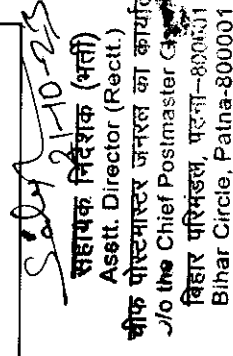 21-10-25
सहायक निदेशक (भर्ती)
Asstt. Director (Rectt.)
चीफ पोस्टमास्टर जनरल का कार्याल
O/o the Chief Postmaster G
बिहार परिमंडल, पटना-800001
Bihar Circle, Patna-800001